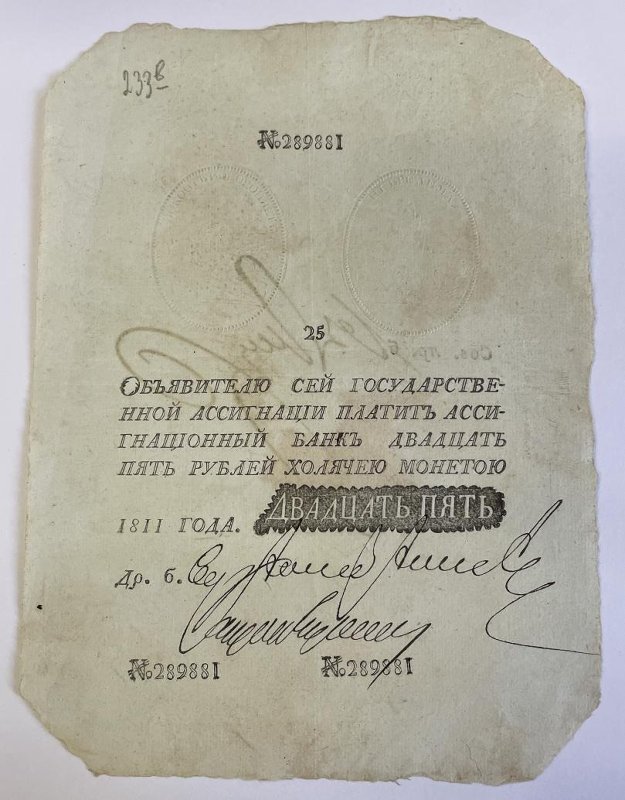 233в
№289881
25
ОБЪЯВИТЕЛЮ СЕЙ ГОСУДАРСТВЕ-
ННОЙ АССИГНАЦIИ ПЛАТИТЪ АССИ-
ГНАЦIОННЫЙ БАНКЪ ДВАДЦАТЬ
ПЯТЬ РУБЛЕЙ ХОЛЯЧЕЮ МОНЕТОЮ
1811 ГОДА. ДВАДЦАТЬ ПЯТЬ
Др. б.
№289881 №289881